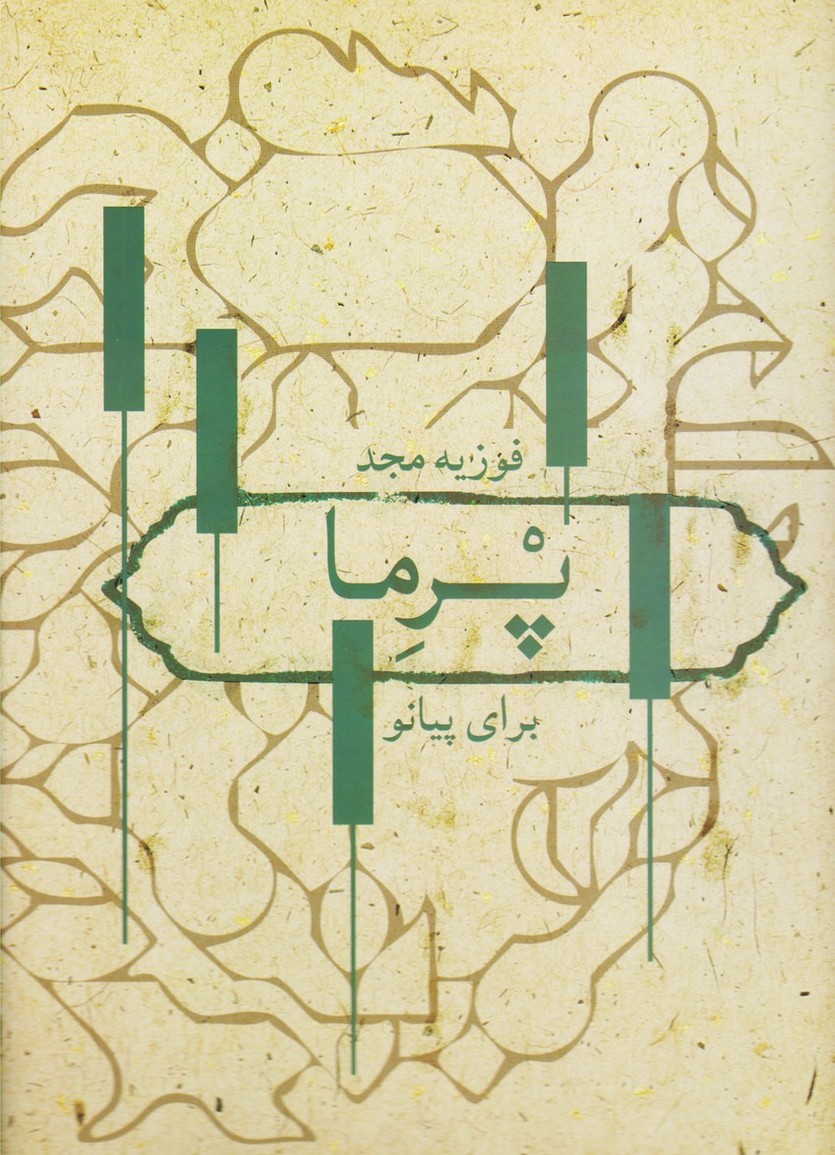 فوزیه مجد
پْرِما
برای پیانو